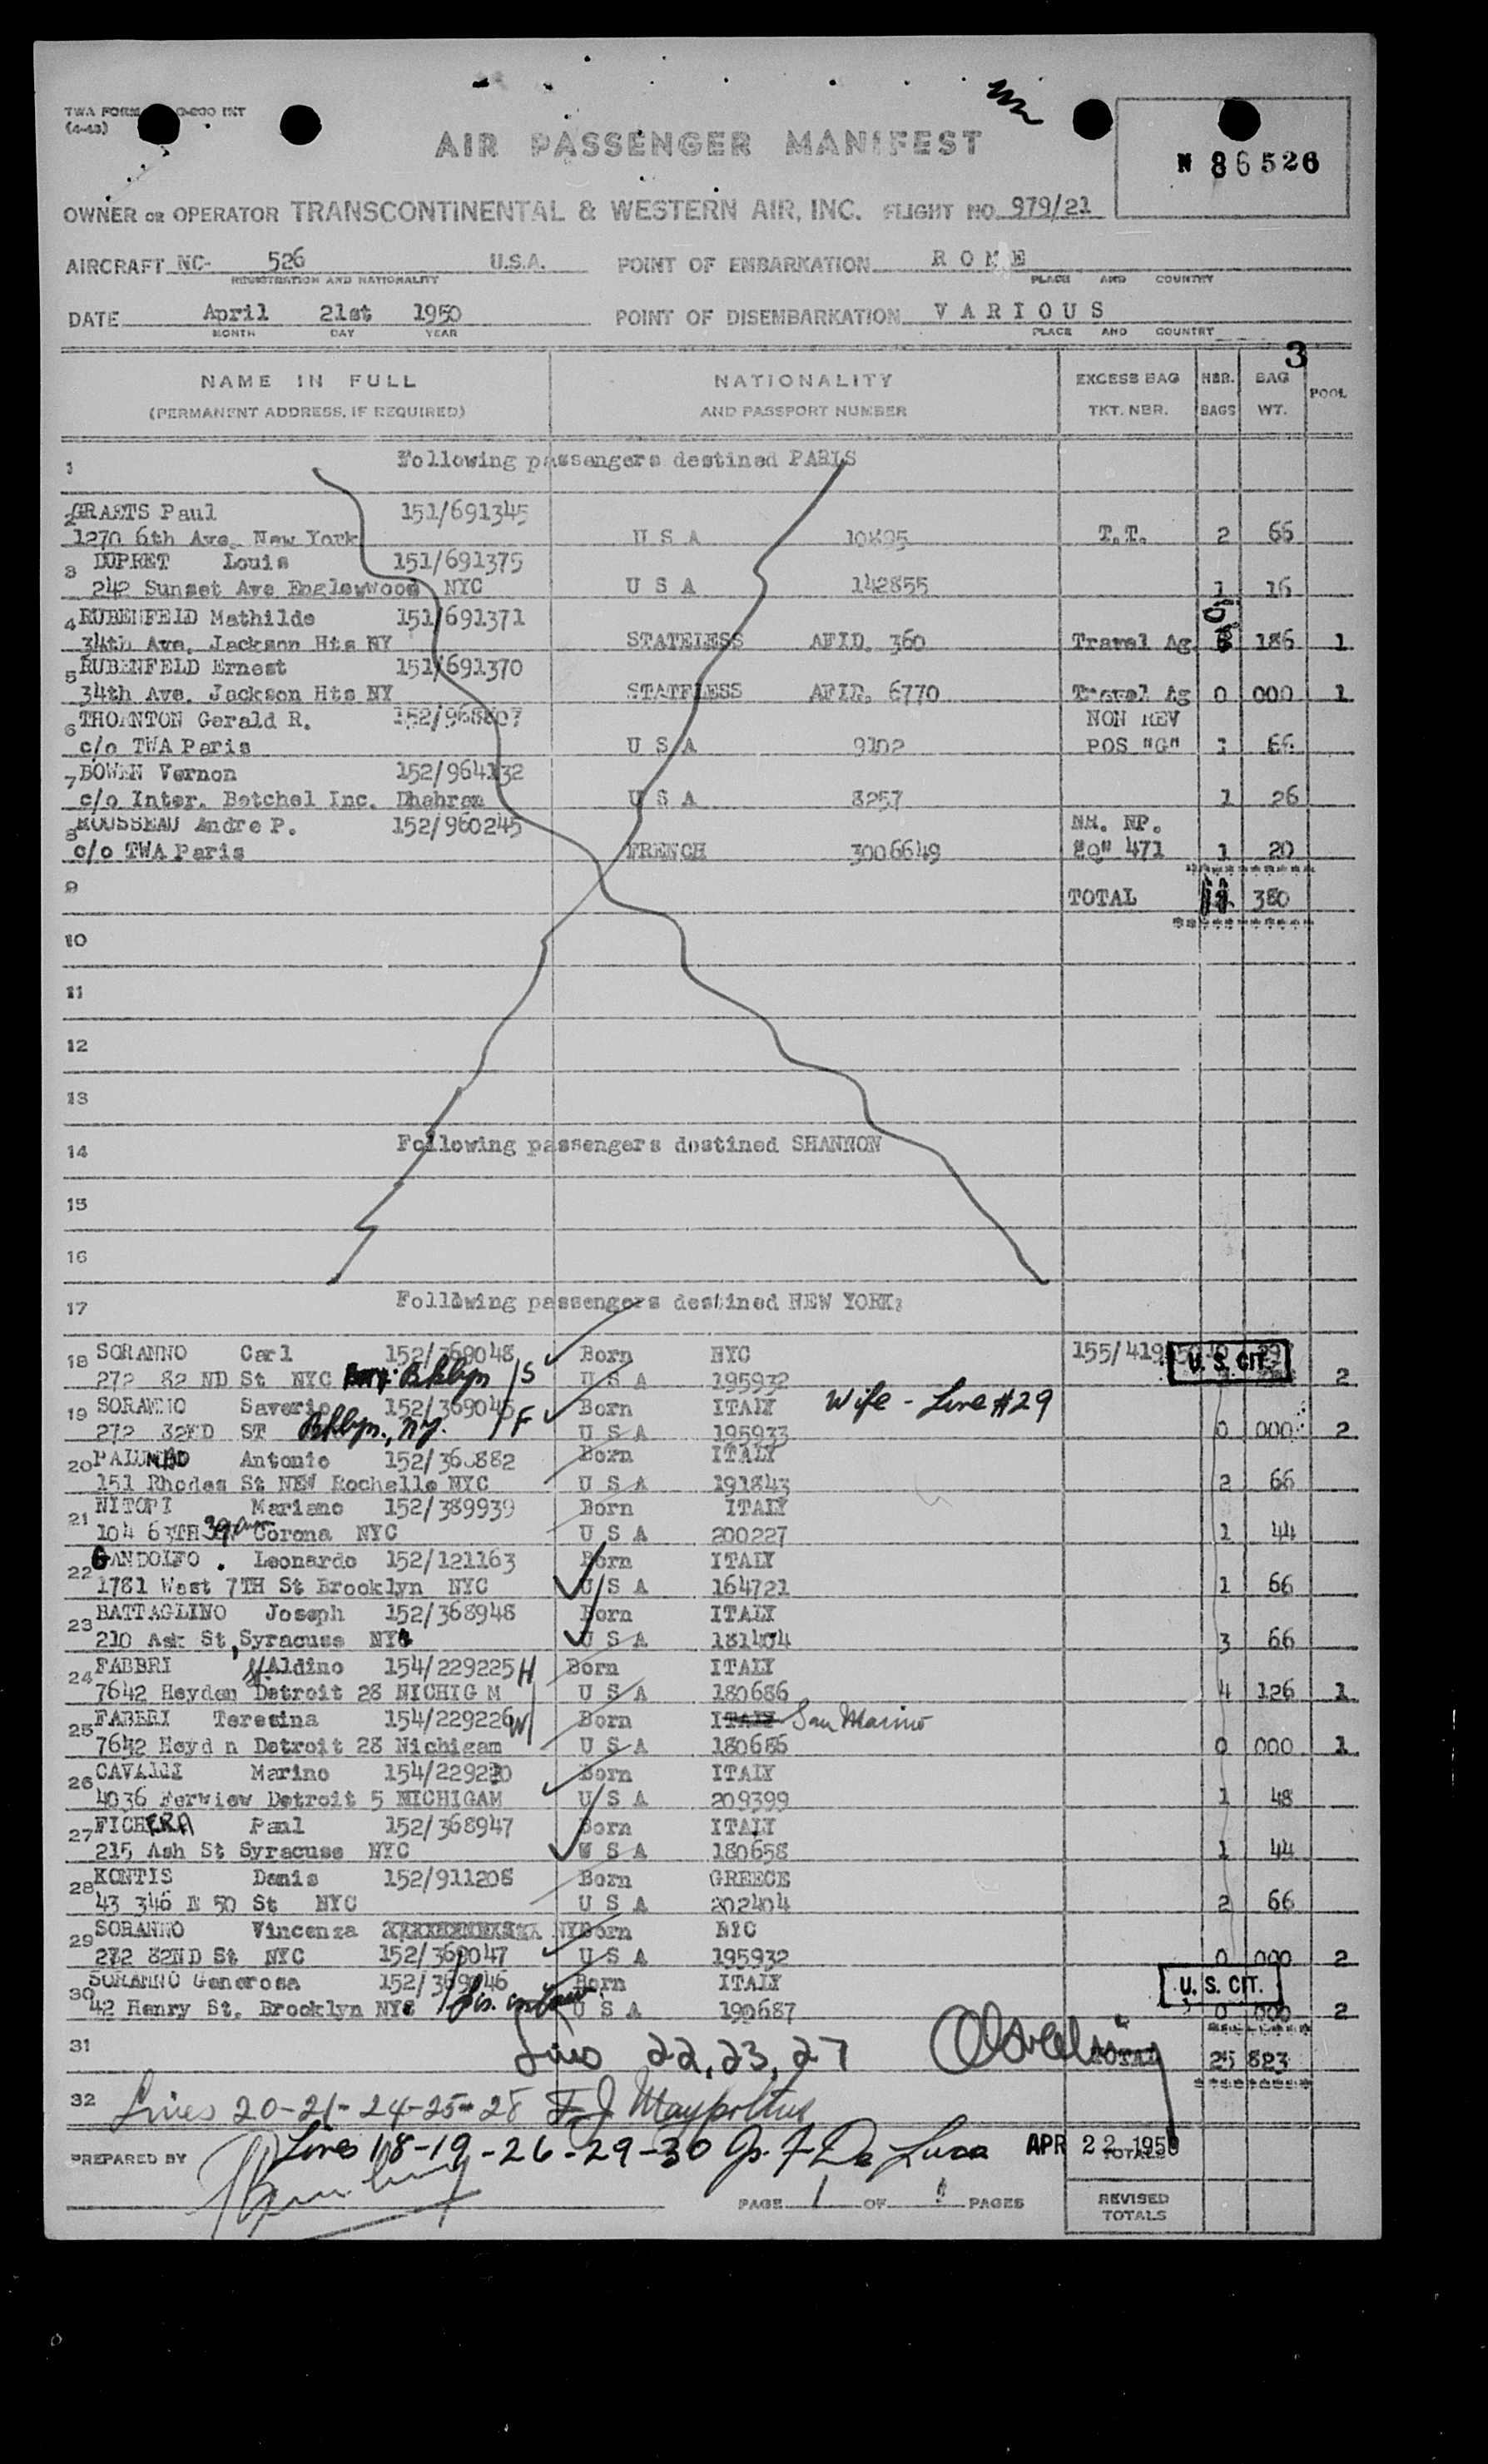 TWA FORM
(4-48)
AIR PASSENGER MANIFEST
N 86526
OWNER OR OPERATOR TRANSCONTINENTAL & WESTERN AIR, INC. FLIGHT NO. 979/21
AIRCRAFT NC- 526 U.S.A. POINT OF EMBARKATION R O M E
REGISTRATION AND NATIONALITY PLACE AND COUNTRY
DATE April 21st 1950 POINT OF DISEMBARKATION V A R I O U S
MONTH DAY YEAR PLACE AND COUNTRY
3
NAME IN FULL NATIONALITY EXCESS BAG NBR. BAG POOL
(PERMANENT ADDRESS, IF REQUIRED) AND PASSPORT NUMBER TKT. NBR. BAGS WT.
1 Following passengers destined PARIS
2 GRAETS Paul 151/691345
1270 6th Ave. New York U S A T.T. 2 66
3 DUPRET Louis 151/691375
242 Sunset Ave Englewwood NYC U S A 142855 1 16
4 RUBENFELD Mathilde 151/691371
34th Ave. Jackson Hts NY STATELESS AFID. 360 Travel Ag 186 1
5 RUBENFELD Ernest 151/691370
34th Ave. Jackson Hts NY STATELESS AFID. 6770 Travel Ag 0 000 1
6 THORNTON Gerald R. 152/968807 NON REV
c/o TWA Paris U S A 9102 POS "G" 1 66
7 BOWEN Vernon 152/964132
c/o Inter. Betchel Inc. Dhahran U S A 8257 1 26
8 ROUSSEAU Andre P. 152/960245 NR. NP.
c/o TWA Paris FRENCH 3006649 471 1 20
9 TOTAL 380
10
11
12
13
14 Following passengers destined SHANNON
15
16
17 Following passengers destined NEW YORK:
18 SORANNO Carl 152/369048 Born NYC 155/419
272 82 ND St NYC Bklyn S U S A 195932 U.S. CIT. 2
19 SORANNO Saverio 152/369045 Born ITALY Wife - Line #29
272 82ND ST Bklyn., N.Y. F U S A 195933 0 000 2
20 Antonio Born ITALY
151 Rhodes St NEW Rochelle NYC U S A 191843 2 66
21 NITOPI Mariano 152/389939 Born ITALY
104 63TH 39 Ave Corona NYC U S A 200227 1 44
22 GANDOLFO . Leonardo 152/121163 Born ITALY
1781 West 7TH St Brooklyn NYC U S A 164721 1 66
23 BATTAGLINO Joseph 152/368948 Born ITALY
210 Ask St, Syracuse NY U S A 181404 3 66
24 FABBRI Aldino 154/229225 H Born ITALY
7642 Heyden Detroit 28 MICHIG M U S A 180686 4 126 1
25 FABBRI Teresina 154/229226 W Born ITALY San Marino
7642 Heyd n Detroit 28 Michigam U S A 180686 0 000 1
26 CAVALLI Marino 154/229230 Born ITALY
4036 Ferview Detroit 5 MICHIGAM U S A 209399 1 48
27 FICHERA Paul 152/368947 Born ITALY
215 Ash St Syracuse NYC U S A 180658 1 44
28 KONTIS Denis 152/911208 Born GREECE
43 346 E 50 St NYC U S A 202404 2 66
29 SORANNO Vincenza Born NYC
272 82ND St NYC 152/369047 U S A 195932 0 000 2
30 SORANNO Generosa 152/369046 Born ITALY U.S. CIT.
42 Henry St. Brooklyn NY Sis. in law U S A 190687 0 000 2
31 Lines 22, 23, 27 TOTAL 25 823
32 Lines 20-21-24-25-28
Lines 18-19-26-29-30 De Luca APR 22 1950
PREPARED BY TOTALS
PAGE 1 OF 1 PAGES REVISED
TOTALS